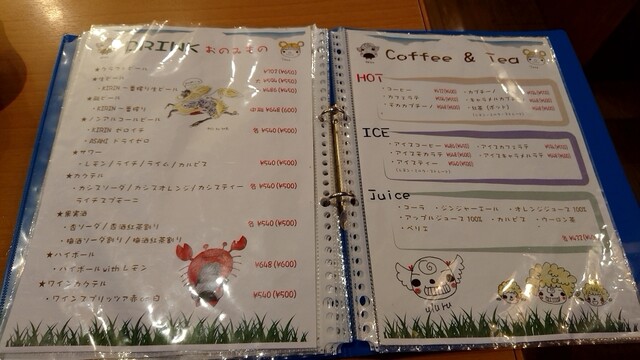 DRINK おのみもの
★生ビール
・KIRIN 一番搾り生ビール
★瓶ビール
・KIRIN 一番搾り 中瓶 ¥648 (600)
★ノンアルコールビール
・KIRIN ゼロイチ 各 ¥540(¥500)
・ASAHI ドライゼロ
★サワー
・レモン/ライチ/ライム/カルピス ¥540(¥500)
★カクテル
・カシスソーダ/カシスオレンジ/カシスティー 各 ¥540(¥500)
ライチスプモーニ
★果実酒
・杏ソーダ/杏酒紅茶割り 各 ¥540(¥500)
・梅酒ソーダ割り/梅酒紅茶割り
★ハイボール
・ハイボール with レモン ¥648 (¥600)
★ワインカクテル
・ワインスプリッツァ 赤or白 ¥540(¥500)
Coffee & Tea
HOT
・コーヒー ・カプチーノ
・カフェラテ ・キャラメルカフェ
・モカカプチーノ ・紅茶 (ポット)
ICE
・アイスコーヒー ・アイスカフェラテ
・アイスモカラテ ・アイスキャラメルラテ
・アイスティー
Juice
・コーラ ・ジンジャーエール ・オレンジジュース100%
・アップルジュース100% ・カルピス ・ウーロン茶
・ペリエ
uluru